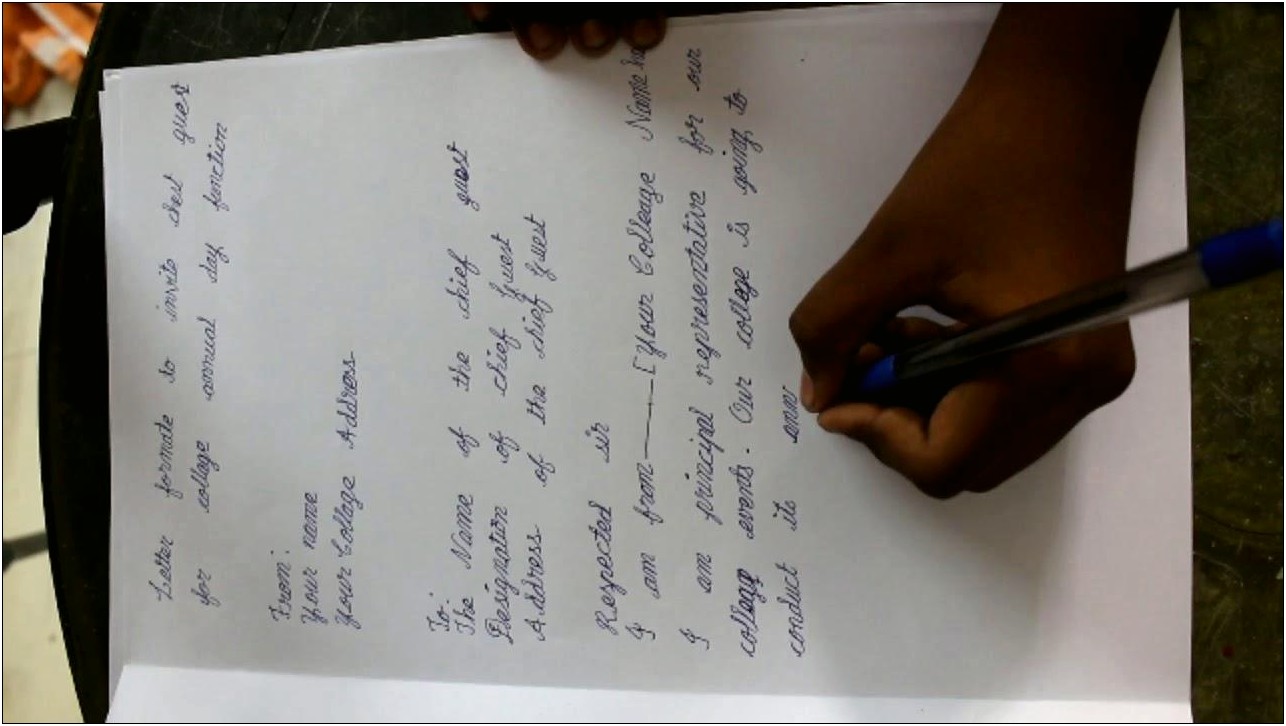 Letter formate to invite chest guest
for collage annual day function
From:
Your name
Your Collage Address
To:
The Name of the chief guest
Designation of chief Guest
Address of the chief Guest
Respected sir
I am from ——— [Your Colleage Name he
I am principal representative for our
college events. Our college is going to
conduct its ann